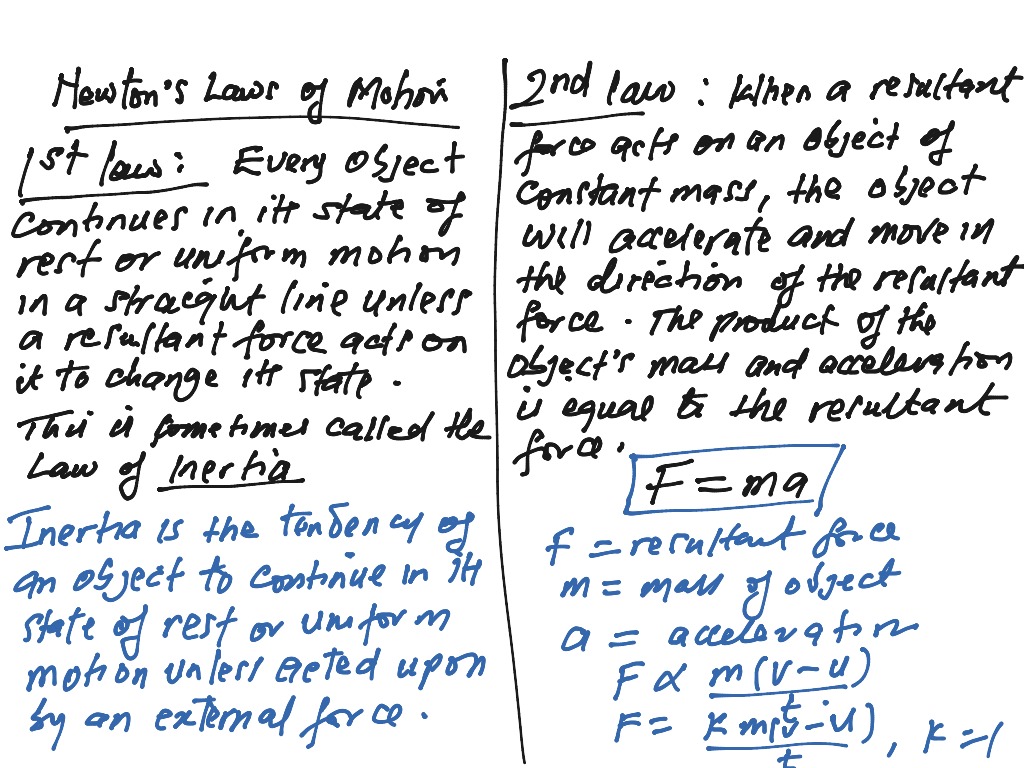 Newton's Laws of Motion
1st law: Every object
continues in its state of
rest or uniform motion
in a straight line unless
a resultant force acts on
it to change its state.
This is sometimes called the
Law of Inertia
Inertia is the tendency of
an object to continue in its
state of rest or uniform
motion unless acted upon
by an external force.
2nd law: When a resultant
force acts on an object of
constant mass, the object
will accelerate and move in
the direction of the resultant
force. The product of the
object's mass and acceleration
is equal to the resultant
force.
F = ma
F = resultant force
m = mass of object
a = acceleration
F ∝ m(v-u)
t
F = k m(v-u)
t
, k=1